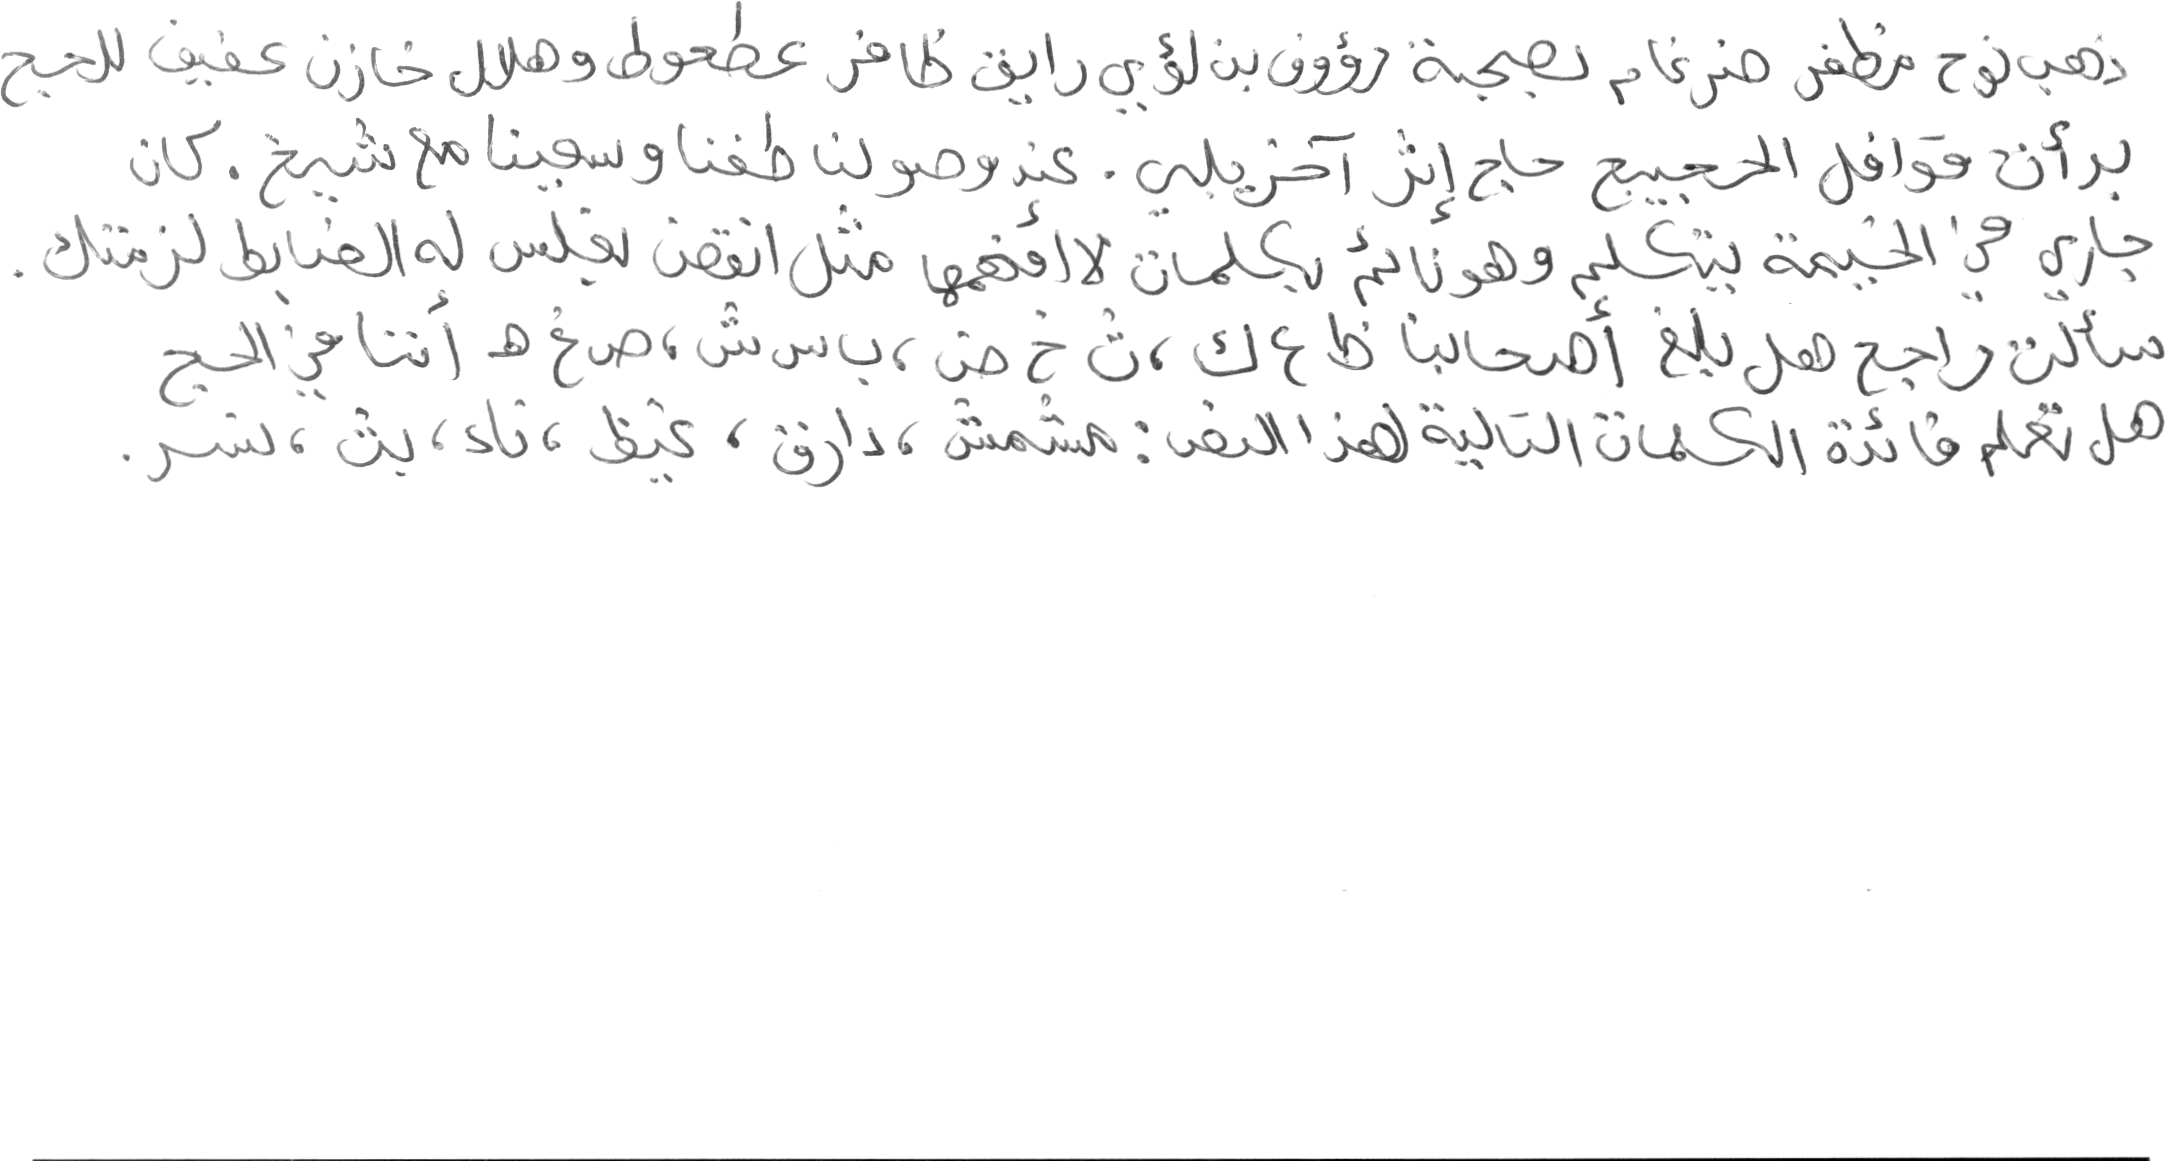 ذهب نوح مظفر ضرغام بصحبة رؤوف بن لؤي رايق ظافر عطعوط وهلال خازن عفيف للحج
بدأت قوافل الحجيج حاج إثر آخر يلبي . عند وصولنا طفنا وسعينا مع شيخ . كان
جاري في الخيمة يتكلم وهو نائم بكلمات لا أفهمها مثل انقض بفلس له الضابط لزمتك .
سألت راجح هل بلغ أصحابنا ظ ع ك ، ث خ ض ، ب س ش ، ص غ هـ أننا في الحج
هل تعلم فائدة الكلمات التالية لهذا النص : مشمش ، دارق ، غيظ ، ناء ، بث ، نسر .